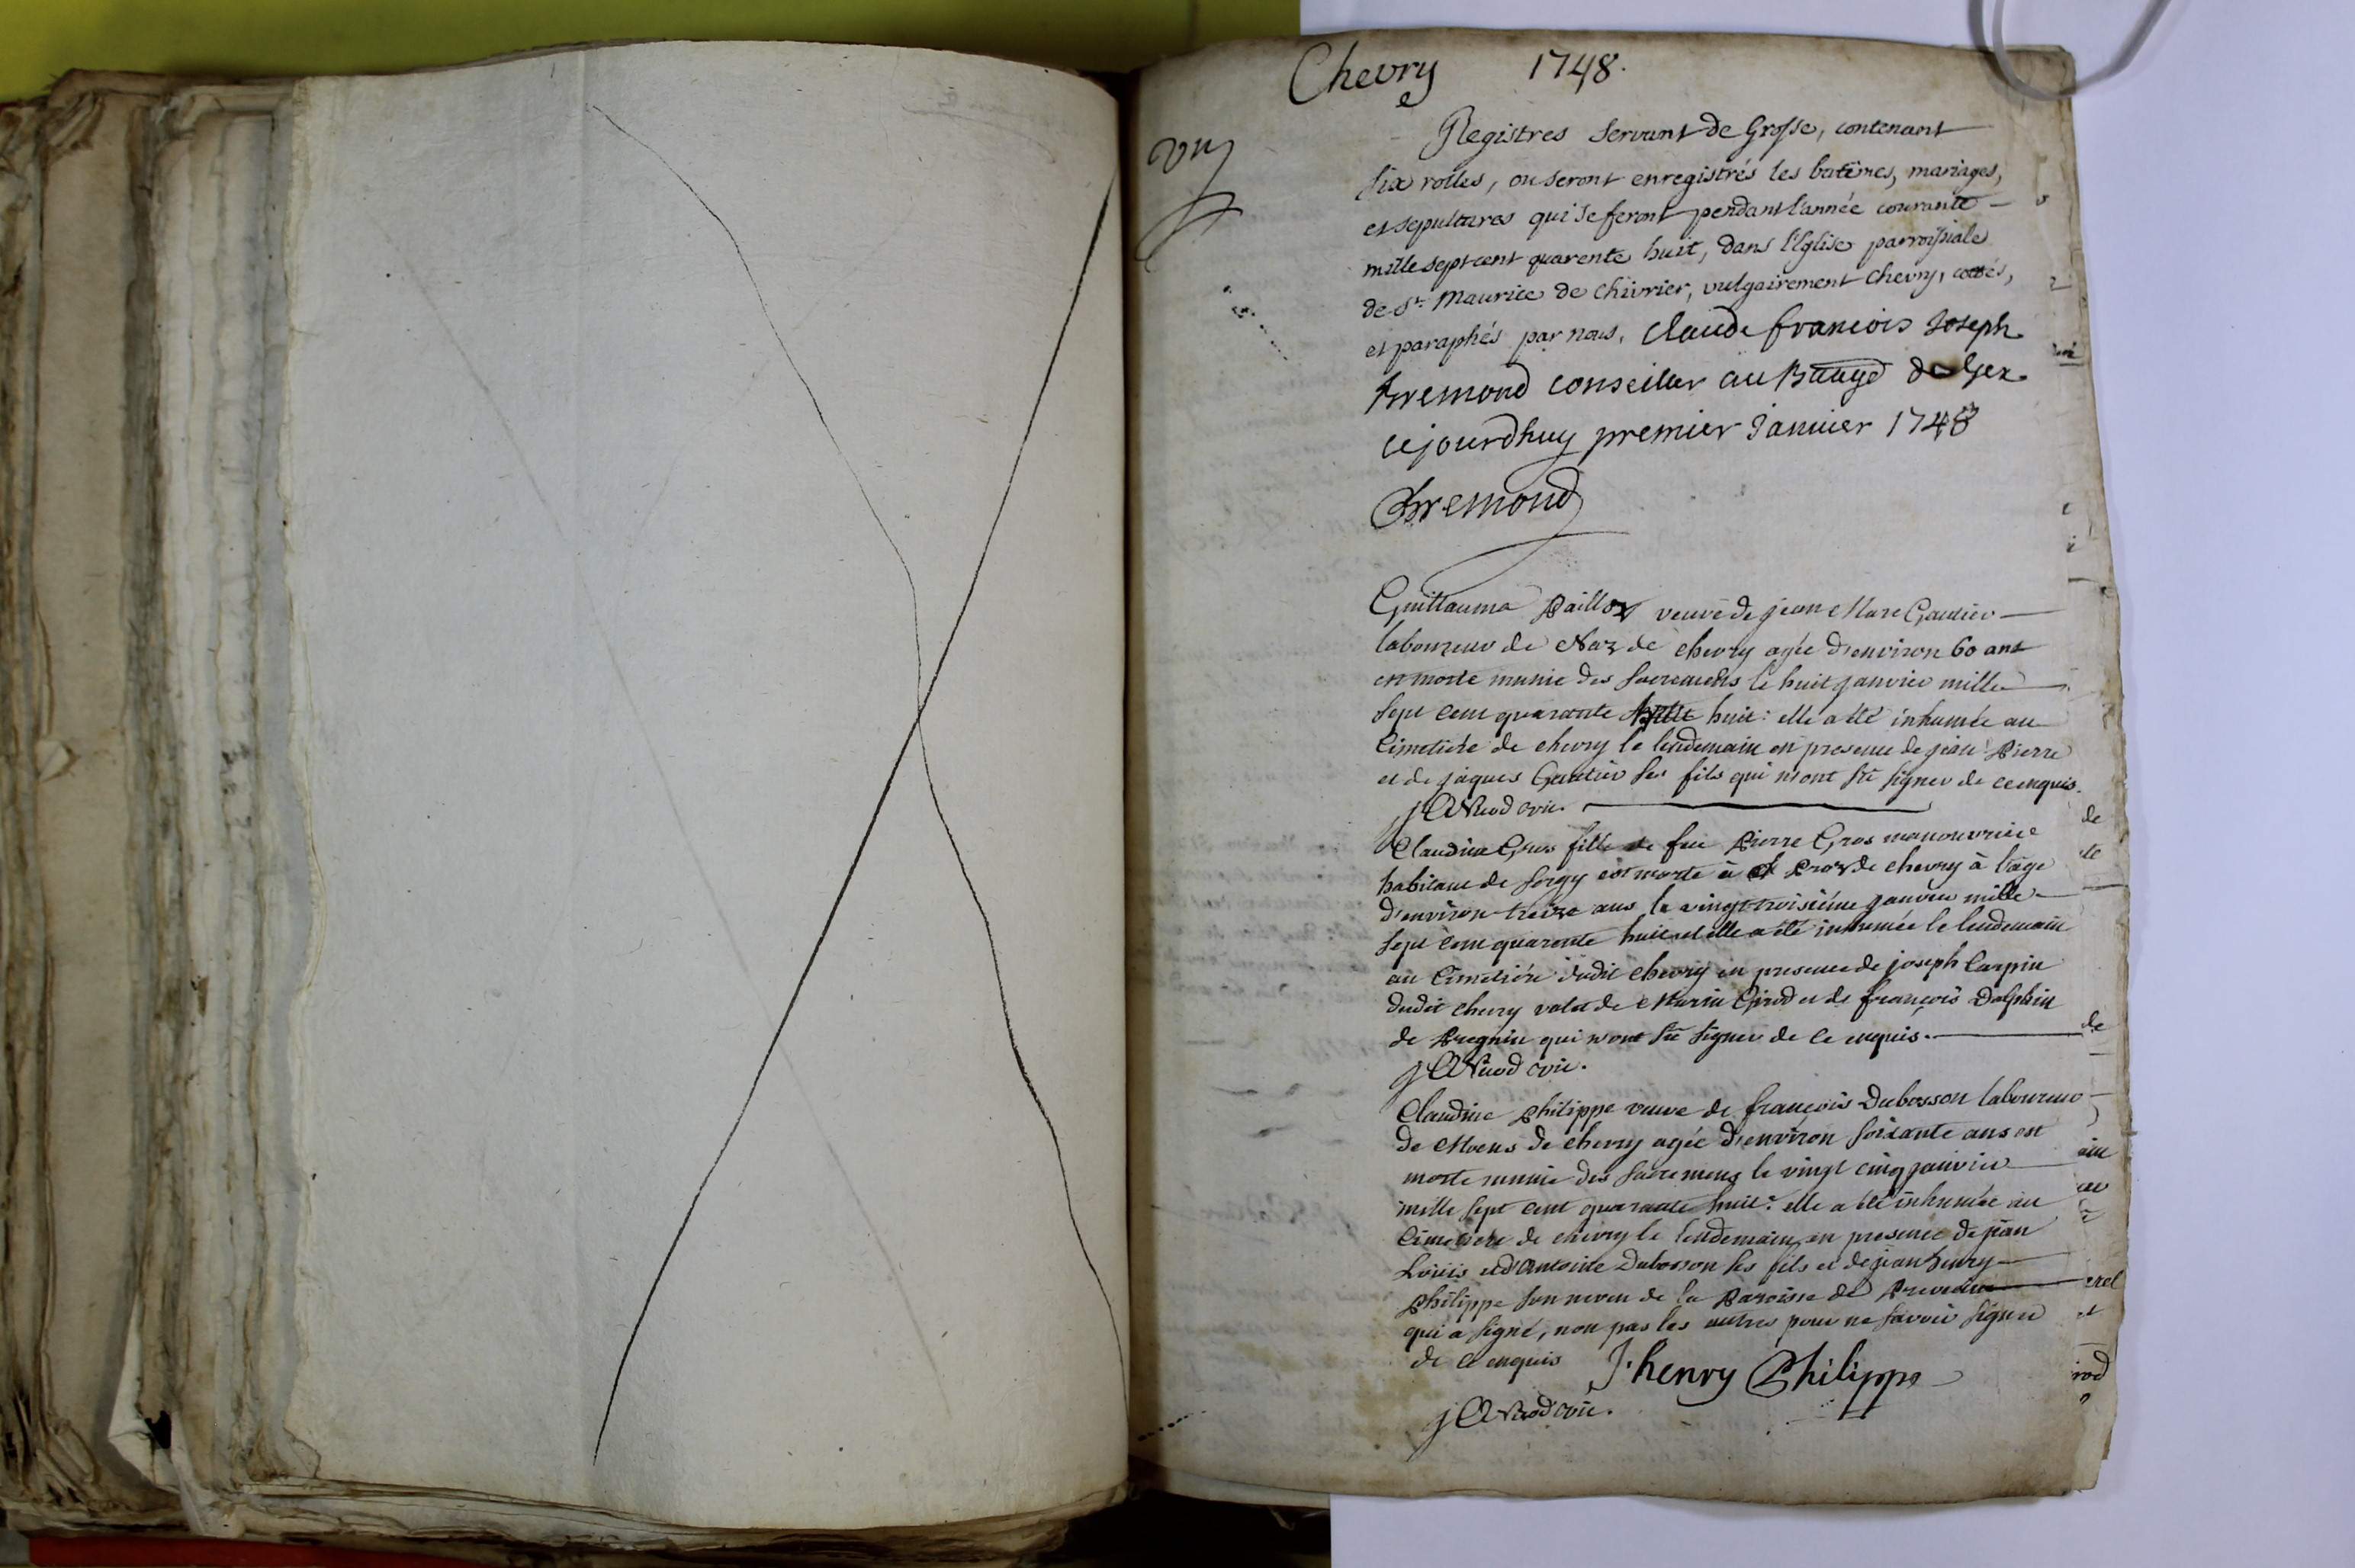 Chevry 1748.
Registres servant de Grosse, contenant
six rolles, ou seront enregistrés les batêmes, mariages,
et sepultures qui se feront pendant l'année courante
mille sept cent quarente huit, dans l'Eglise parroissiale
de St. Maurice de Chivrier, vulgairement Chevry, cottés,
et paraphés par nous, Claude francois Joseph
fremond conseiller au de Gex
cejourdhuy premier Janvier 1748
fremond
Guillauma paillox veuve de jean Marc Gautier
laboureur de Naz de chevry agée d'environ 60 ans
est morte munie des sacremens le huit janvier mille
sept cent quarante huit: elle a été inhumée au
Cimetiére de chevry le lendemain en presence de jean Pierre
et de jaques Gautier ses fils qui n'ont sû signer de ce enquis.
Claudine Gros fille de feu Pierre Gros manouvrier
habitant de sergy est morte à Croz de chevry à l'âge
d'environ treize ans le vingt troisiéme janvier mille
sept cent quarante huit et elle a été inhumée le lendemain
au Cimetiére dudit chevry en presence de joseph Carpin
dudit chevry valet de Marin Girod et de françois Dalphin
de Pregnin qui n'ont sû signer de ce enquis.
Claudine philippe veuve de françois Dubosson laboureur
de Moens de chevry agée d'environ soixante ans est
morte munie des sacremens le vingt cinq janvier
mille sept cent quarante huit: elle a été inhumée au
Cimetiere de chevry le lendemain en presence de jean
Loüis et d'Antoine Dubosson ses fils et de jean henry
philippe son neveu de la Paroisse de
qui a signé, non pas les autres pour ne savoir signer
de ce enquis J. henry Philippe